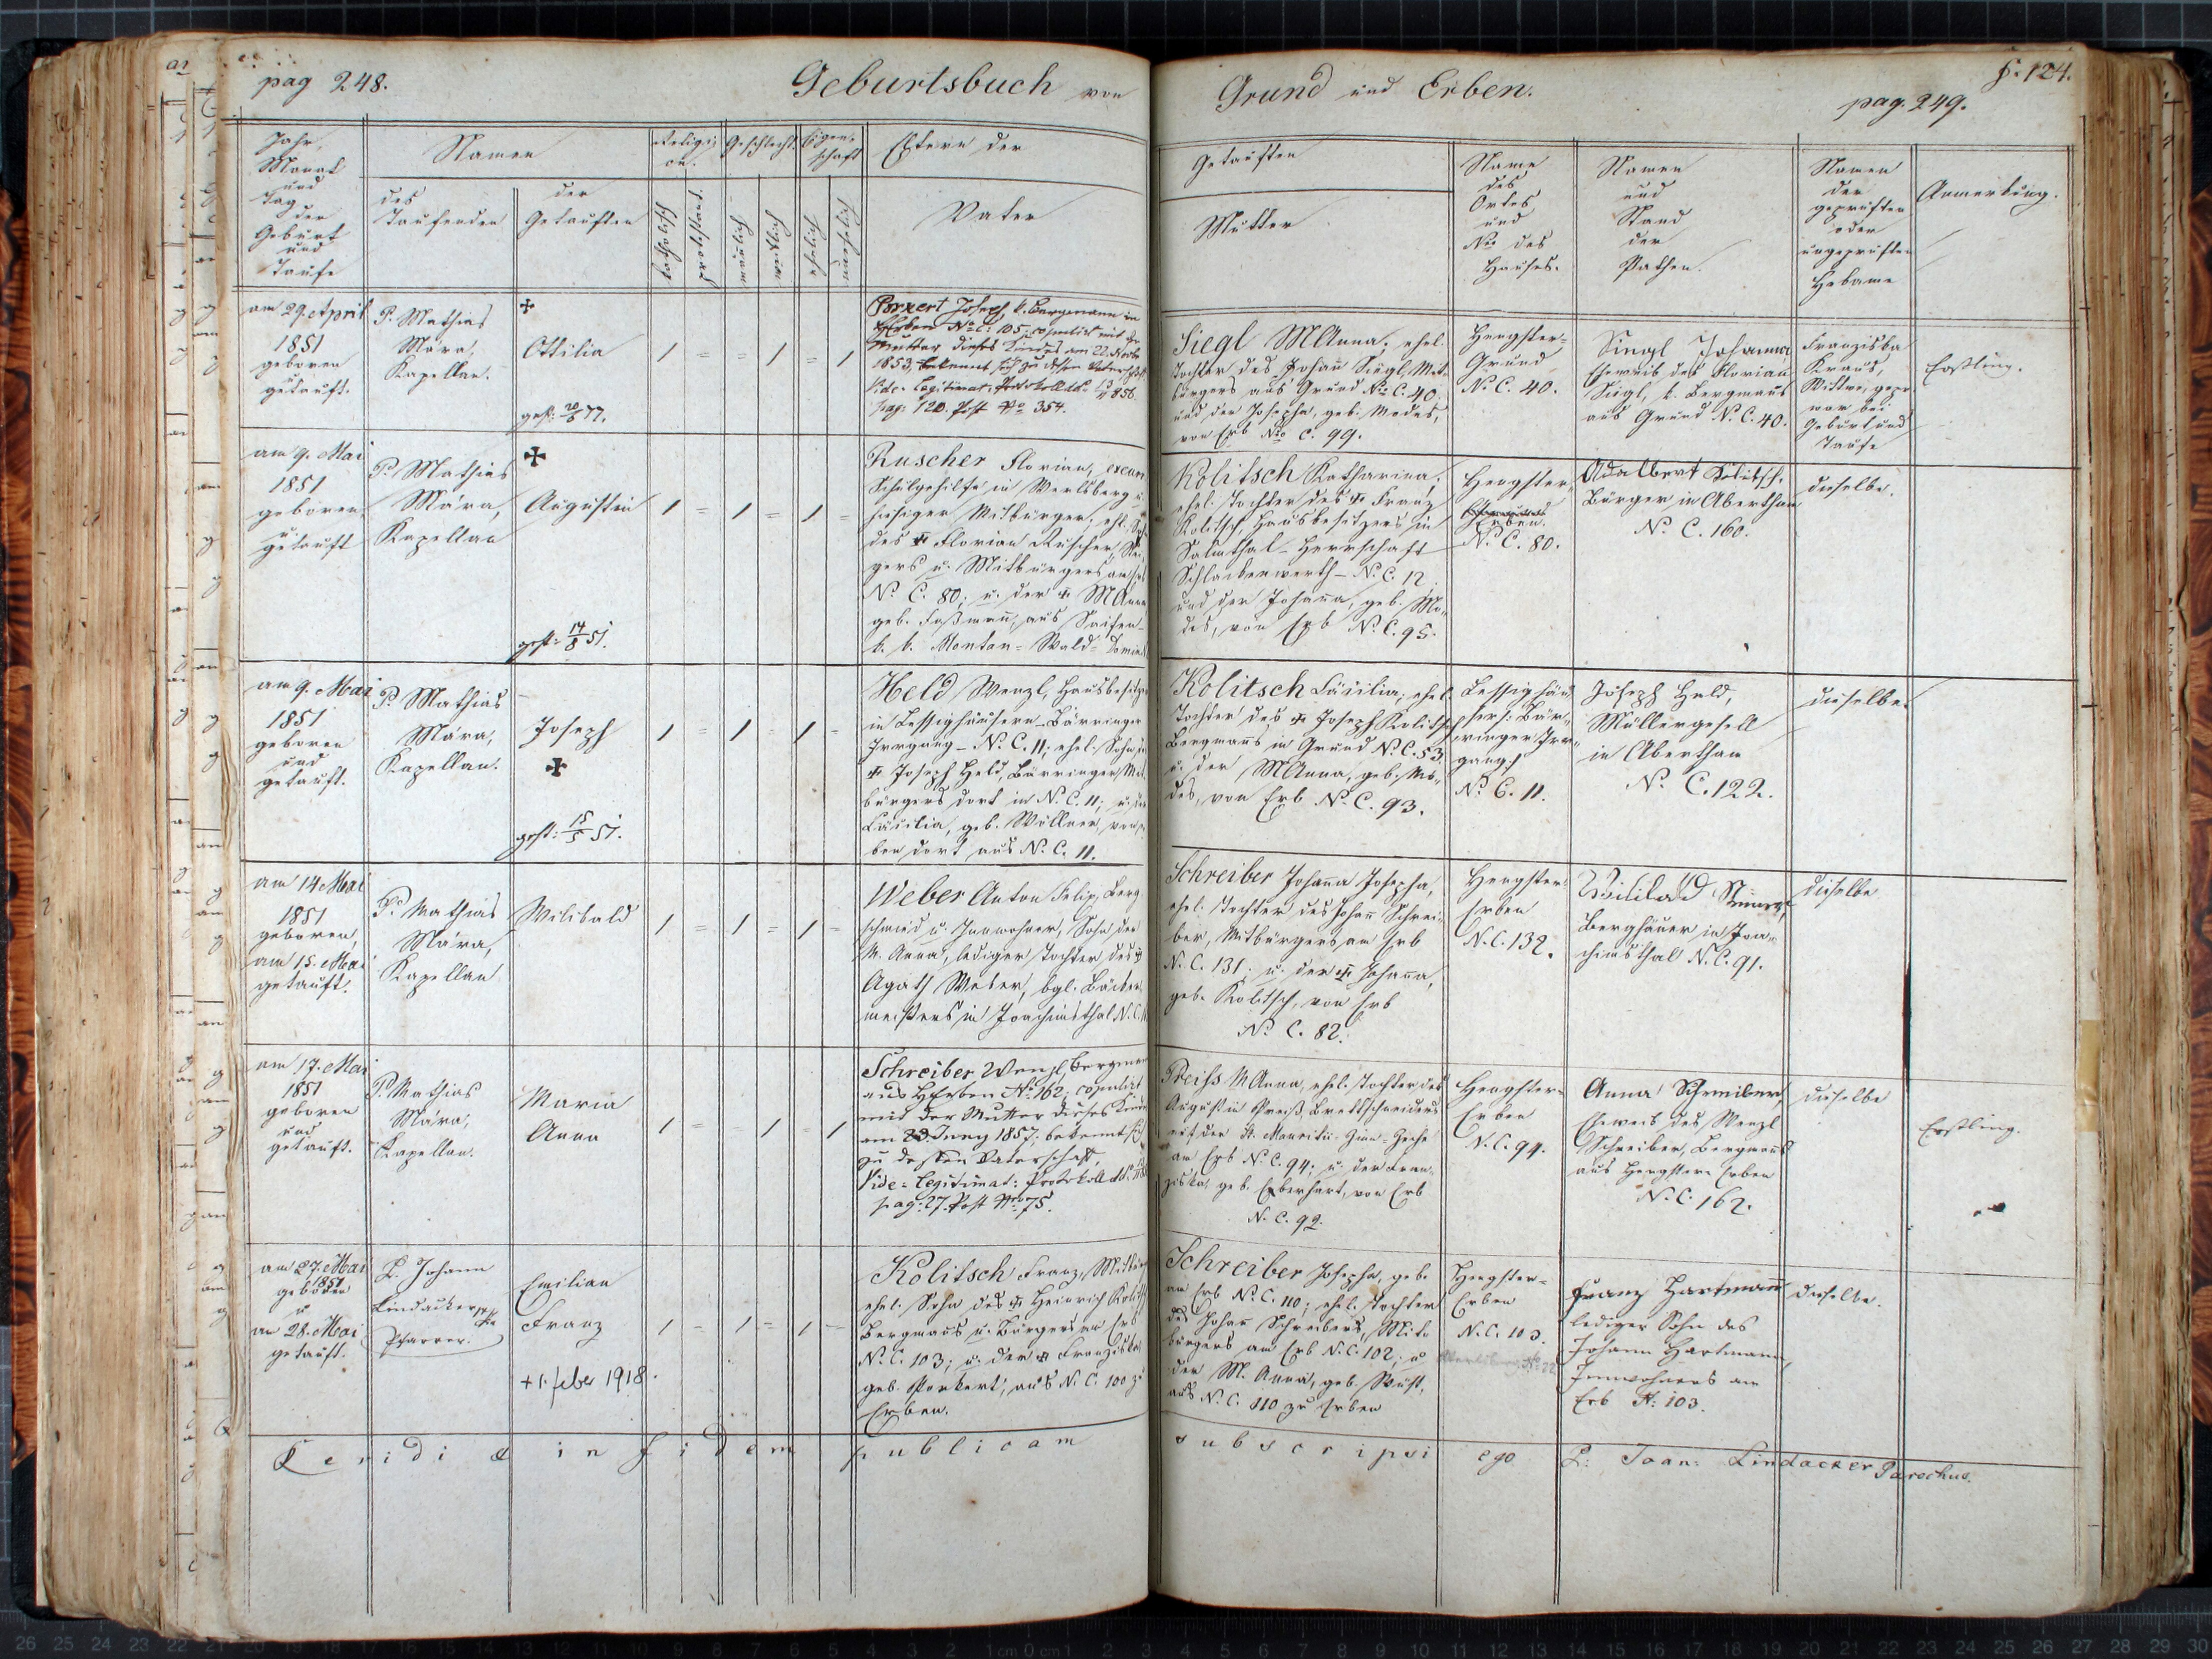 pag 248.
Geburtsbuch von
Grund und Erben.
f. 124.
pag. 249.
Jahr,
Monat
und
Tag
der
Geburt
und
Taufe
Namen
des
Taufenden
der
Getauften
Religi-
on.
katholisch
protestant.
Geschlecht
mänlich
weiblich
Eigen-
schaft
ehelich
unehelich
Eltern der
Vater
Getauften
Mutter
Name
des
Ortes
und
Nro des
Hauses.
Namen
und
Stand
der
Pathen.
Namen
der
geprüften
oder
ungeprüften
Hebame
Anmerkung.
am 29. April
1851
geboren
u
getauft.
P. Mathias
Mára,
Kapellan.
Ottilia
gest: 20/8 77.
1 = = 1 = 1
Porkert Joseph, k. Bergmann in
HErben No C: 105, copulirt mit der
Mutter dieses Kindes am 22. Novbr
1853, bekennt sich zu dessen Vaterschaft
Vide: Legitimat: Protokoll
pag: 120. Post No 354.
Siegl MAnna, ehel.
Tochter des Johann Siegl, Mit-
bürgers aus Grund No C. 40.
und der Josepha, geb. Modes,
von Erb No C. 99.
Hengster-
Grund
No C. 40.
Siegl Johanna
Eheweib des Florian
Siegl, k. Bergmans
aus Grund N. C. 40.
Franziska
Kraus,
Wittwe, gepr
war bei
Geburt und
Taufe
Erstling.
am 9. Mai
1851
geboren
u.
getauft
P. Mathias
Mára,
Kapellan
Augustin
gest: 14/8 51.
1 = 1 = 1 =
Ruscher Florian,
Schulgehilfe in Werlsberg u.
hiesiger Mitbürger, ehl. Sohn
des Florian Ruscher, Stei-
gers u. Mitbürgers am Erb
No C. 80; u. der MAnna
geb. Faßmann, aus Saifen-
k. k. Montan- Wald- Domin
Kolitsch Katharina,
ehel. Tochter des Franz
Kolitsch, Hausbesitzers in
Salmthal- Herrschaft
Schlackenwerth - N. C. 12.
und der Johana, geb. Mo-
des, von Erb N. C. 95.
Hengster-
Erben.
No C. 80.
Adalbert Kolitsch,
Bürger in Abertham
No C. 160.
dieselbe.
am 9. Mai
1851
geboren
und
getauft.
P. Mathias
Mára,
Kapellan.
Joseph
gest: 15/5 51.
1 = 1 = 1 =
Held Wenzl, Hausbesitzer
in Lessighäusern - Bärringer
Irrgang - No C. 11; ehel. Sohn des
Joseph Held, Bärringer Mit-
bürgers dort in No C. 11; u. der
Cäcilia, geb. Wöllner, von e-
ben dort aus No C. 11.
Kolitsch Cäcilia, ehel.
Tochter des Joseph Kolitsch
Bergmans in Grund N. C. 53.
u. der MAnna, geb. Mo-
des, von Erb No C. 93.
Lessighäu-
ser: Bär-
ringer Irr-
gang:/
No C. 11.
Joseph Held,
Müllergesell
in Abertham
No C. 122.
dieselbe.
am 14 Mai
1851
geboren,
am 15. Mai
getauft.
P. Mathias
Mára,
Kapellan
Wilibald
1 = 1 = 1 =
Weber Anton Felix, Berg-
schmied u. Innwohner, Sohn der
M. Anna, lediger Tochter des
Agath Weber, bgl. Bäcker-
meisters in Joachimsthal N. C.
Schreiber Johana Josepha,
ehel. Tochter des Johan Schrei-
ber, Mitbürgers am Erb
N. C. 131. u. der Johana,
geb. Kolitsch, von Erb
No C. 82.
Hengster-
Erben
N. C. 132.
Wilibald
Berghäuer in Joa-
chimsthal N. C. 91.
dieselbe
am 17. Mai
1851
geboren
und
getauft.
P. Mathias
Mára,
Kapellan.
Maria
Anna
1 = 1 = 1
Schreiber Wenzl, Bergmann
aus HErben No 162, copulirt
mit der Mutter dieses Kindes
am 23. Juny 1857, bekennt sich
zu dessen Vaterschaft,
Vide: Legitimat: Protokoll
pag: 27. Post Nro 75.
Preiß MAnna, ehel. Tochter des
Augustin Preiß, Brettschneiders
auf der St. Mauritii- Zinn- Zeche
am Erb N. C. 94; u. der Fran-
ziska, geb. Eberhart, von Erb
N. C. 92.
Hengster-
Erben
N. C. 94.
Anna Schreiber,
Eheweib des Wenzl
Schreiber, Bergmans
aus Hengster- Erben
N. C. 162.
dieselbe
Erstling.
am 27. Mai
1851
geboren
u
am 28. Mai
getauft.
L. Johann
Lindacker
Pfarrer.
Emilian
Franz
+ 1. feber 1918.
1 = 1 = 1 =
Kolitsch Franz, Mitbürger
ehel. Sohn des Heinrich Kolitsch
Bergmans u. Bürgers am Erb
No C. 103; u. der Franziska
geb. Porkert, aus N. C. 100 zu
Erben.
Schreiber Josepha, geb.
am Erb N. C. 110; ehel. Tochter
des Johan Schreibers, Mit-
bürgers am Erb N. C. 102; u
der M. Anna, geb. Wüst,
aus N. C. 110 zu Erben
Hengster-
Erben
N. C. 103.
Franz Hartmann
lediger Sohn des
Johann Hartmann,
Innwohners am
Erb N: 103.
dieselbe.
in fidem publicam subscripsi ego L: Joan: Lindacker Parochus.